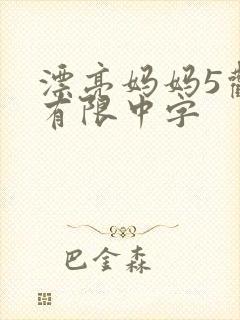 漂亮妈妈5
有限中字
巴金森